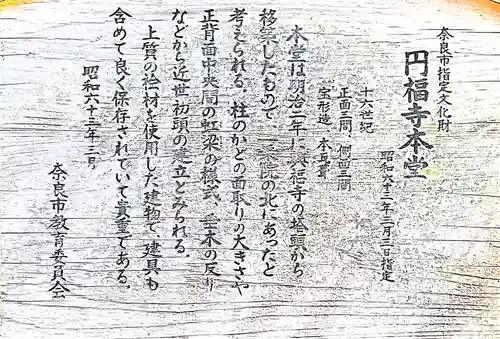 奈良市指定文化財
円福寺本堂
昭和六十二年三月三日指定
十六世紀
正面三間、側面三間
宝形造、本瓦葺
本堂は明治二年に興福寺の塔頭から
移築したもので 院の北にあったと
考えられる。柱のかどの面取りの大きさや
正背面中央間の虹梁の様式、垂木の反り
などから近世初頭の建立とみられる。
上質の桧材を使用した建物で、建具も
含めて良く保存されていて貴重である。
昭和六十三年三月
奈良市教育委員会